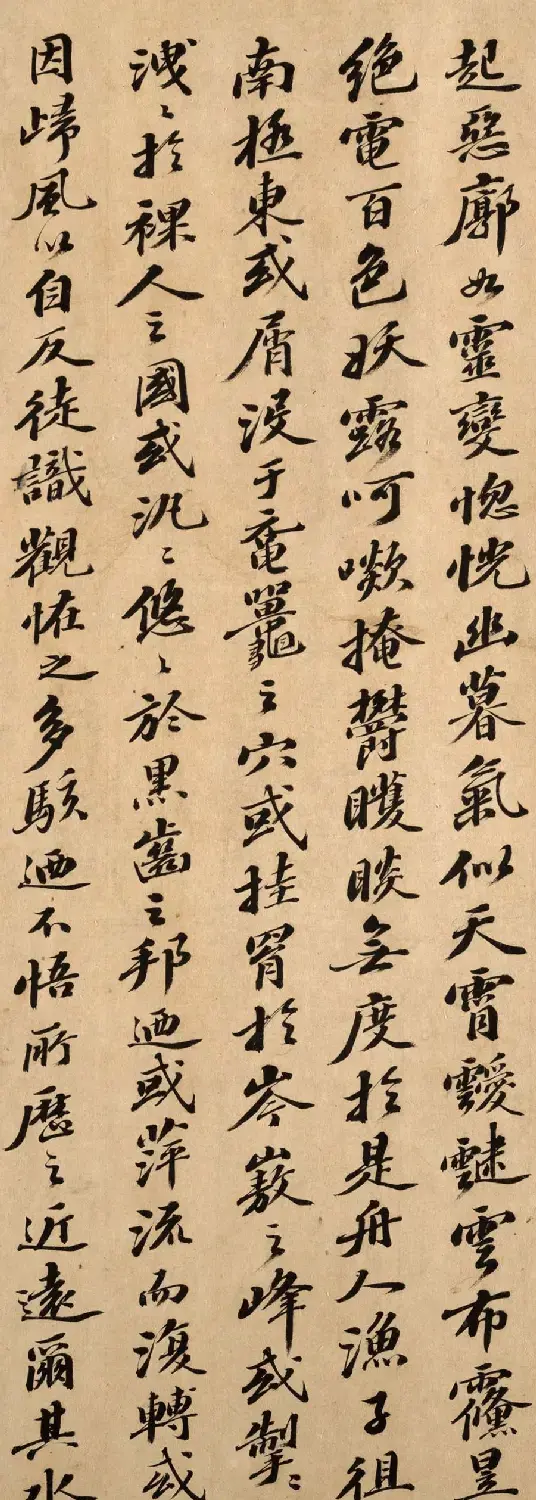 起惡廓如靈變惚恍幽暮氣似天霄靉靆雲布昱
絕電百色妖露呵㗵掩鬱矆睒無度於是舟人漁子徂
南極東或屑沒于黿鼉之穴或挂罥於岑嶅之峰或掣〻
洩〻於裸人之國或汎〻悠〻於黑齒之邦迺或萍流而澓轉或
因歸風以自反徒識觀恠之多駭迺不悟所歷之近遠爾其水